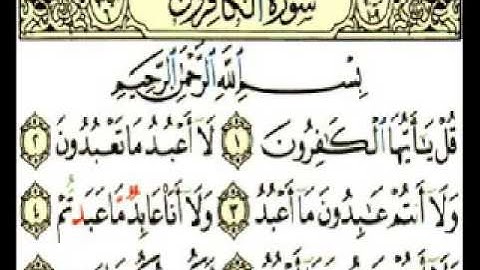 سُورَةُ الكَافِرُونَ
بِسْمِ ٱللَّهِ ٱلرَّحْمَٰنِ ٱلرَّحِيمِ
قُلْ يَٰٓأَيُّهَا ٱلْكَٰفِرُونَ ١ لَآ أَعْبُدُ مَا تَعْبُدُونَ ٢
وَلَآ أَنتُمْ عَٰبِدُونَ مَآ أَعْبُدُ ٣ وَلَآ أَنَا۠ عَابِدٌ مَّا عَبَدتُّمْ ٤